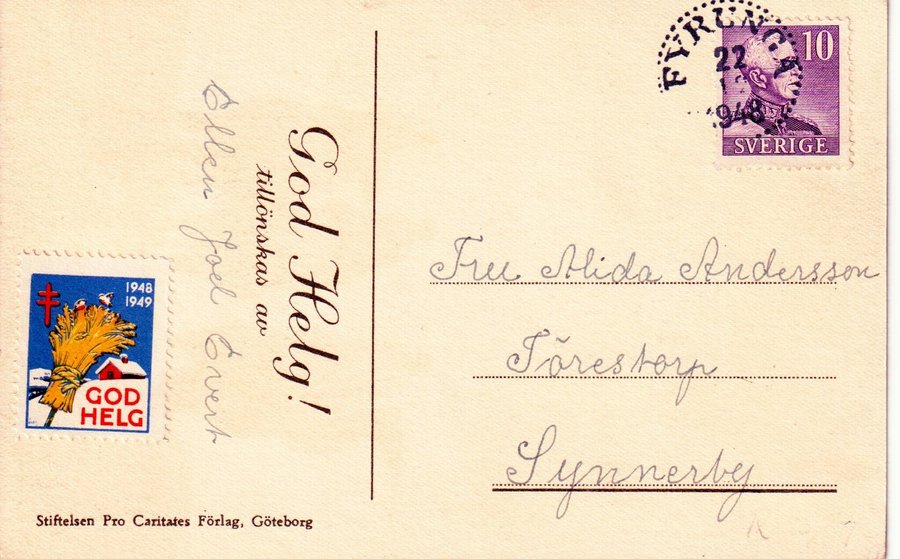 FYRUNGA
22
1948
10
SVERIGE
God Helg!
tillönskas av
Ellen Joel Evert
Fru Alida Andersson
Törestorp
Synnerby
1948
1949
GOD
HELG
Stiftelsen Pro Caritates Förlag, Göteborg